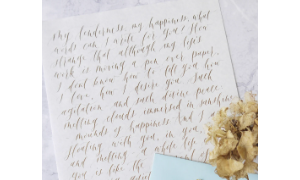 my tenderness, my happiness, what
words can I write for you? How
strange that although my life's
work is moving a pen over paper,
I don't know how to tell you how
I love, how I desire you. Such
agitation and such divine peace
melting clouds immersed in sunshine
mounds of happiness. and I
floating with you, in you,
and melting a whole life
you is like the